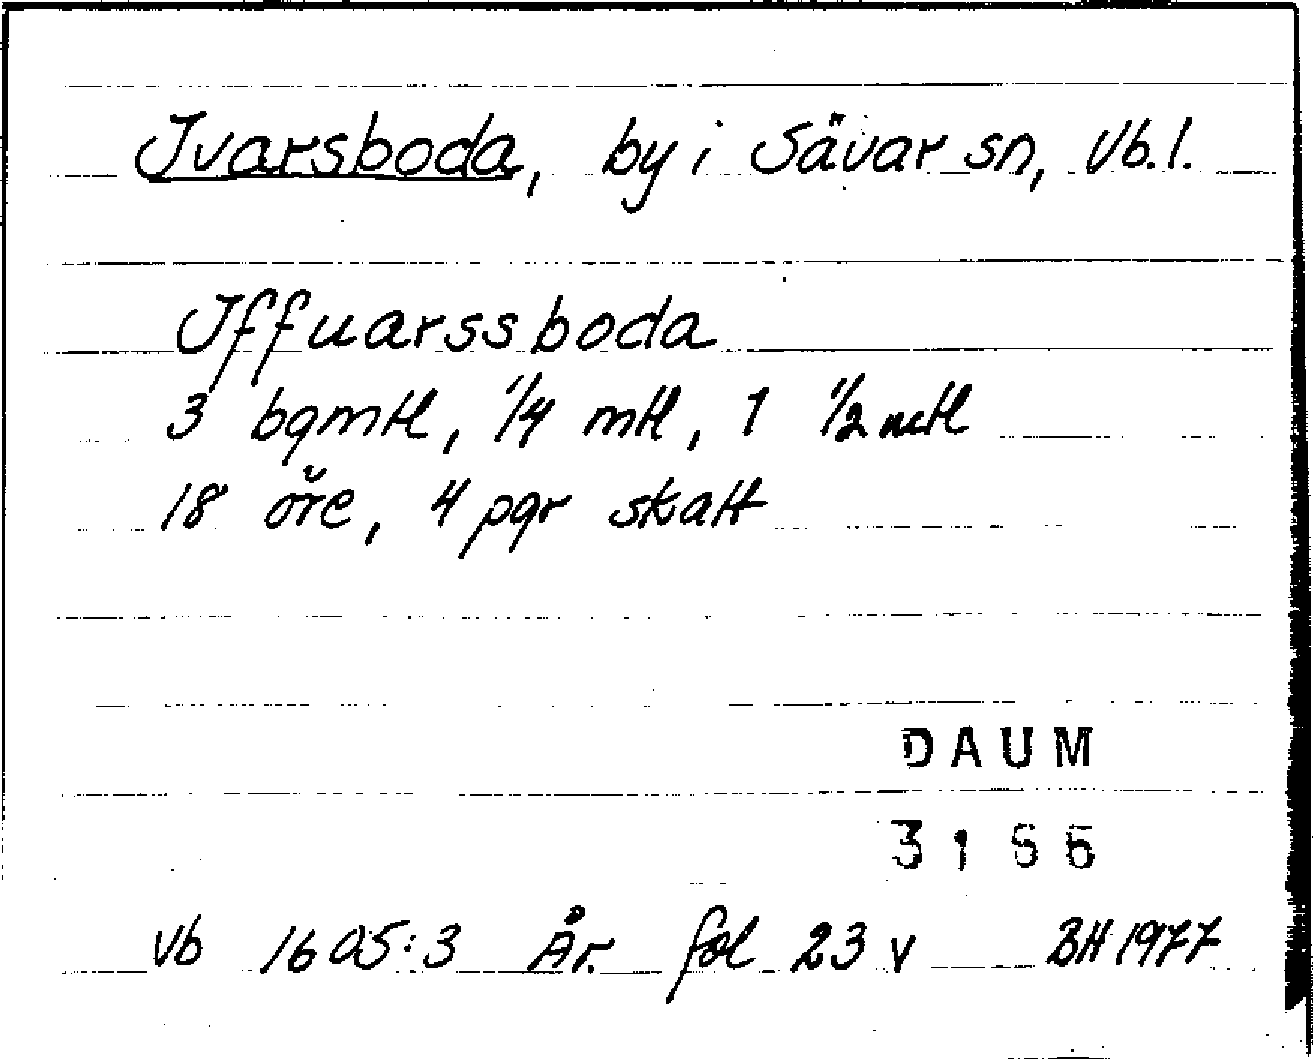 Ivarsboda, by i Sävar sn, Vb.l.
Iffuarssboda
3 bgmtl, 1/4 mtl, 1 1/2 mtl
18 öre, 4 pgr skatt
DAUM
3166
Vb 1605:3 År. fol 23 v BH 1977